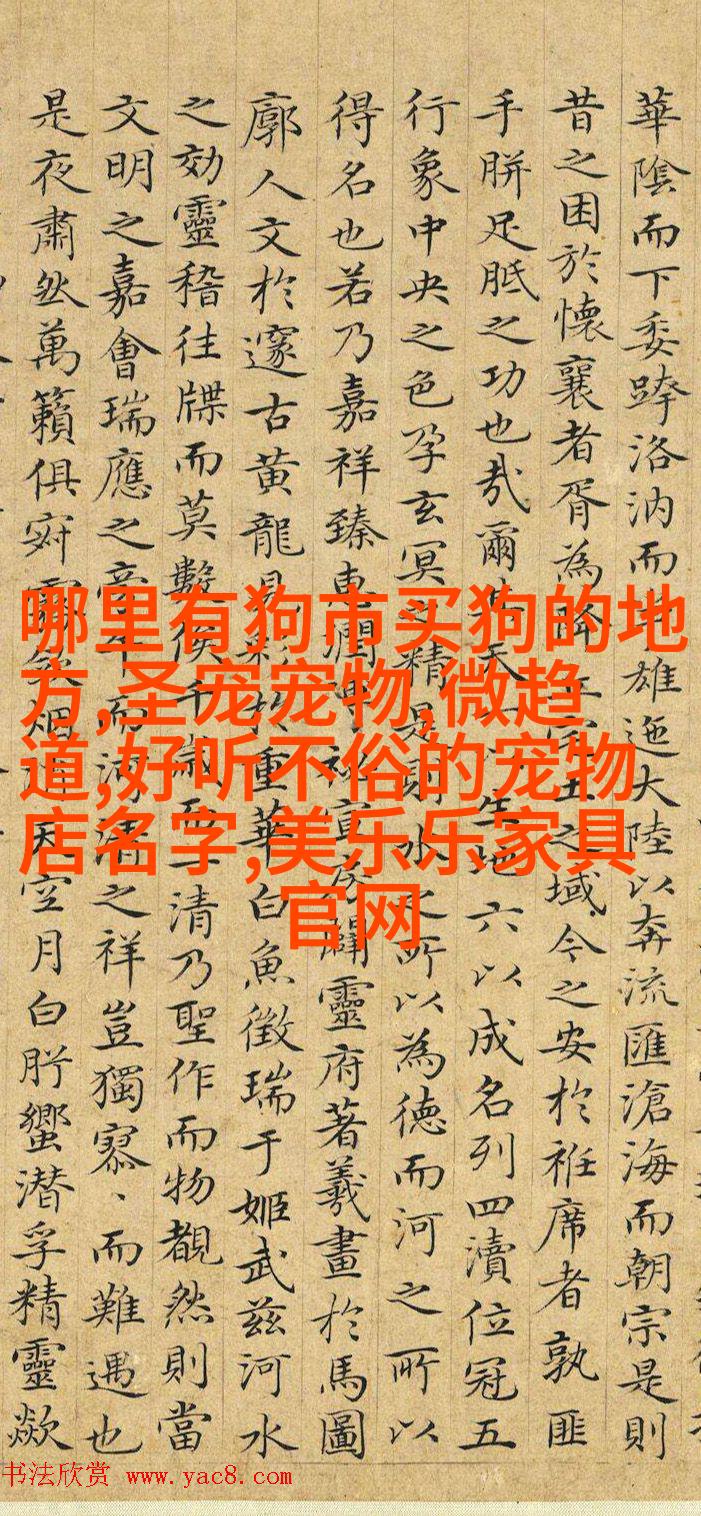 華陰而下委跨洛汭而雄迤大陸以奔流匯滄海而朝宗是則
昔之困於懷襄者胥為降丘宅土之域今之安於袵席者孰匪
手胼足胝之功也哉爾其天一以生地六以成名列四瀆位冠五
行象中央之色孕玄冥之精是則水之所以為德而河之所以
得名也若乃嘉祥臻惠潤神祕宣房闢靈府著羲畫於馬圖
廓人文於邃古黃龍見彩於重華白魚徵瑞于姬武茲河水
之効靈稽往牒而莫數俟千歲而一清乃聖作而物覩然則當
文明之嘉會瑞應之年而河清之祥豈獨寡、而難遇也
是夜肅然萬籟俱寂霧斂烟消天空月白肸蠁潛孚精靈歘
哪里有狗市买狗的地
方,圣宠宠物,微趋
道,好听不俗的宠物
店名字,美乐乐家具
官网
书法欣赏 www.yac8.com